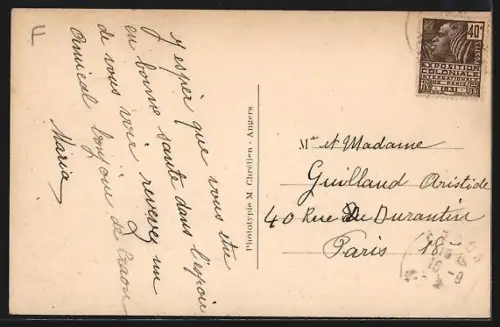 J'espère que vous êtes
en bonne santé dans l'espoir
de vous voir recevez un
amical bonjour de
Maria
Phototypie M. Chrétien - Angers
40c
POSTES
EXPOSITION
COLONIALE
INTERNATIONALE
PARIS
1931
Mr et Madame
Guilland Aristide
40 Rue Du Durantin
Paris 18e